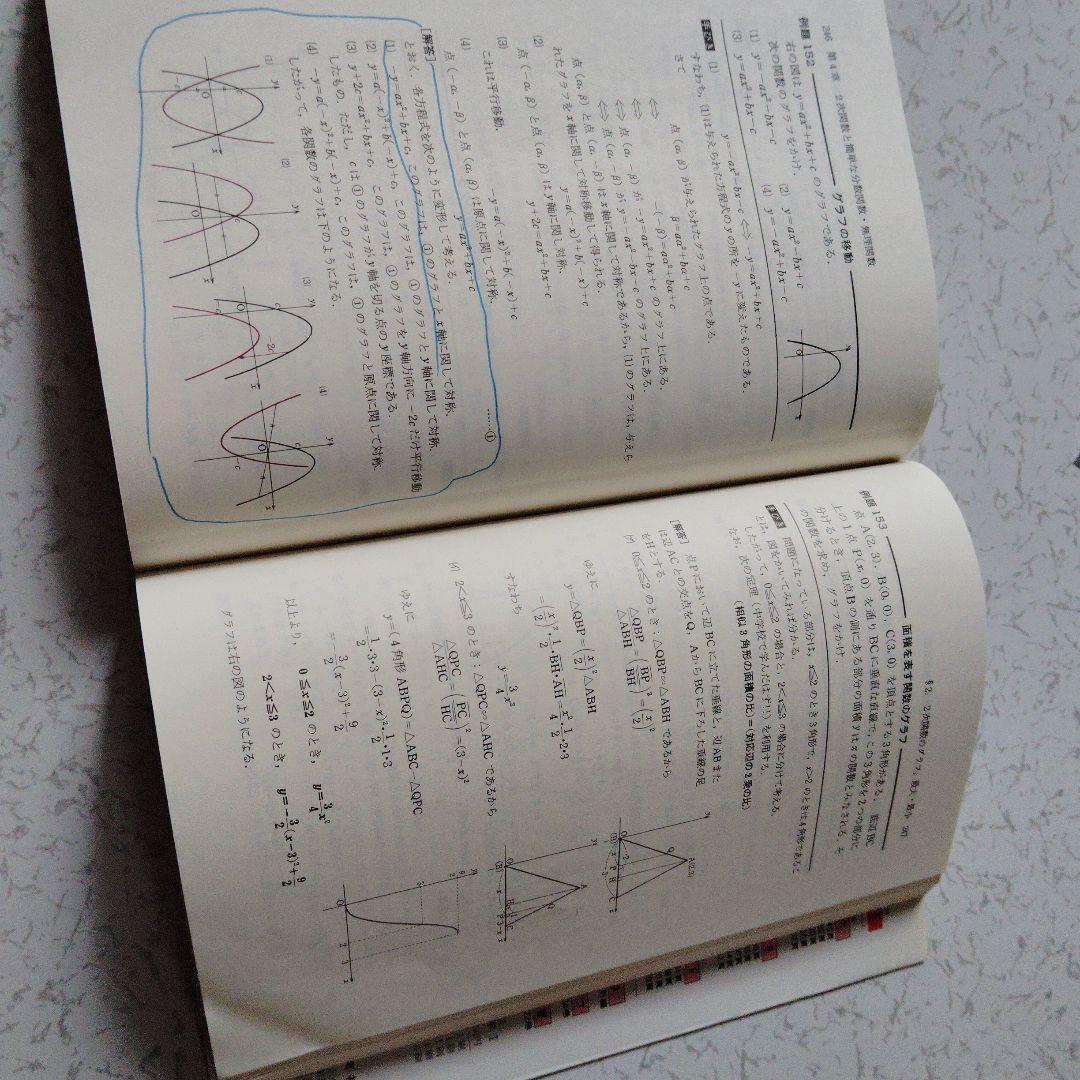 246 第4章 2次関数と簡単な分数関数・無理関数
例題 152 グラフの移動
右の図は y=ax²+bx+c のグラフである.
次の関数のグラフをかけ.
(1) y=-ax²-bx-c (2) y=ax²-bx+c
(3) y=ax²+bx-c (4) y=-ax²+bx-c
(1) y=-ax²-bx-c ⟺ -y=ax²+bx+c
すなわち, (1)は与えられた方程式の y の所を -y に変えたものである.
さて
点 (α, β) が与えられたグラフ上の点である.
β=aα²+bα+c
⟺ -(-β)=aα²+bα+c
⟺ 点 (α, -β) が -y=ax²+bx+c のグラフ上にある.
⟺ 点 (α, -β) が y=-ax²-bx-c のグラフ上にある.
点 (α, β) と点 (α, -β) は x 軸に関して対称であるから, (1) のグラフは, 与えら
れたグラフを x 軸に関して対称移動して得られる.
(2) y=a(-x)²+b(-x)+c
点 (-α, β) と点 (α, β) は y 軸に関し対称.
(3) y+2c=ax²+bx+c
これは平行移動.
(4) -y=a(-x)²+b(-x)+c
点 (-α, -β) と点 (α, β) は原点に関して対称.
[解答] y=ax²+bx+c ……①
とおく. 各方程式を次のように変形して考える.
(1) -y=ax²+bx+c, このグラフは, ①のグラフと x 軸に関して対称.
(2) y=a(-x)²+b(-x)+c, このグラフは, ①のグラフと y 軸に関して対称.
(3) y+2c=ax²+bx+c, このグラフは, ①のグラフを y 軸方向に -2c だけ平行移動
したもの. ただし, c は①のグラフが y 軸を切る点の y 座標である.
(4) -y=a(-x)²+b(-x)+c, このグラフは, ①のグラフと原点に関して対称.
したがって, 各関数のグラフは下のようになる.
(1) (2) (3) (4)
§2. 2次関数のグラフ, 最大・最小 247
例題 153 面積を表す関数のグラフ
点 A(2, 3), B(0, 0), C(3, 0) を頂点とする3角形がある. 底辺 BC
上の1点 P(x, 0) を通り BC に垂直な直線で, この3角形を2つの部分に
分けるとき, 頂点 B の側にある部分の面積 y は x の関数とみなされる. そ
の関数を求め, グラフをかけ.
問題になっている部分は, x≦2 のとき3角形で, x>2 のときは4角形であるこ
とは, 図をかいてみれば分かる.
したがって, 0≦x≦2 の場合と, 2<x≦3 の場合に分けて考える.
なお, 次の定理 (中学校で学んだはず!!) を利用する.
(相似3角形の面積の比)=(対応辺の2乗の比)
[解答] 点 P において辺 BC に立てた垂線と, 辺 AB また
は辺 AC との交点を Q, A から BC に下ろした垂線の足
を H とする.
(ｱ) 0≦x≦2 のとき：△QBP∽△ABH であるから
△QBP/△ABH=(BP/BH)²=(x/2)²
ゆえに
y=△QBP=(x/2)²△ABH
=(x/2)²·1/2·BH·AH=x²/4·1/2·2·3
すなわち y=3/4x²
(ｲ) 2<x≦3 のとき：△QPC∽△AHC であるから
△QPC/△AHC=(PC/HC)²=(3-x)²
ゆえに
y=(4角形 ABPQ)=△ABC-△QPC
=1/2·3·3-(3-x)²·1/2·1·3
=-3/2(x-3)²+9/2
以上より, 0≦x≦2 のとき, y=3/4x²
2<x≦3 のとき, y=-3/2(x-3)²+9/2
グラフは右の図のようになる.